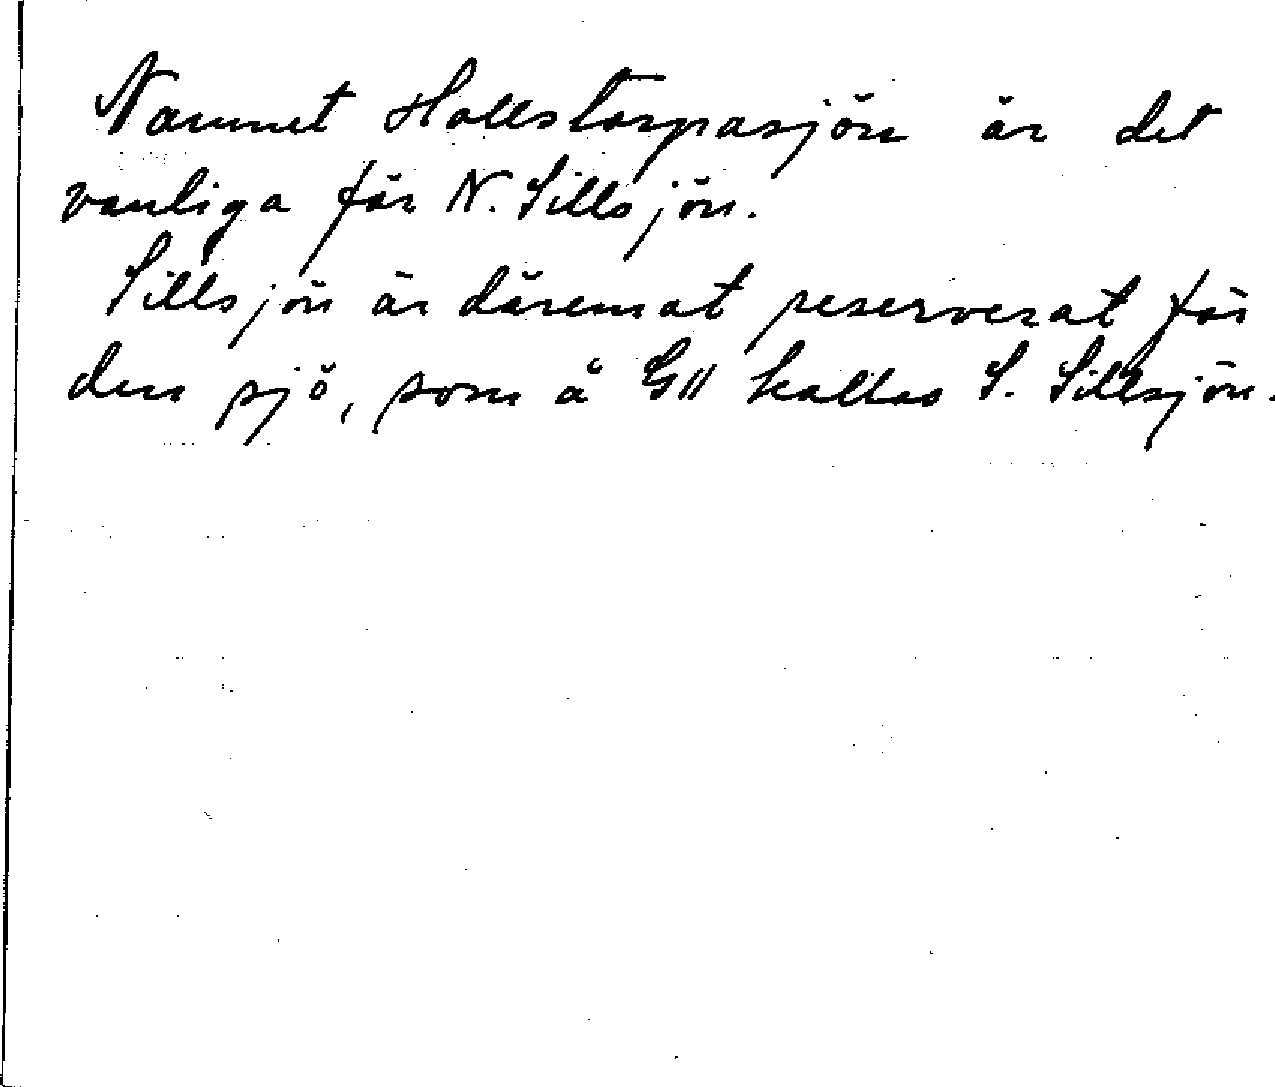 Namnet Hallstorpasjön är det
vanliga för N. Sillsjön.
Sillsjön är däremot reserverat för
den sjö, som å GII kallas S. Sillsjön.